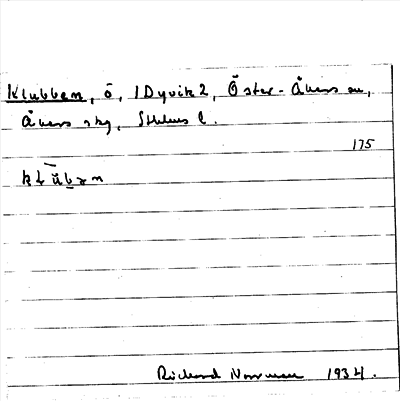 Klubben, ö, 1 Dyvik 2, Öster-Åkers sn,
Åkers skg, Sthlms l.
175
Richard Norrman 1934.